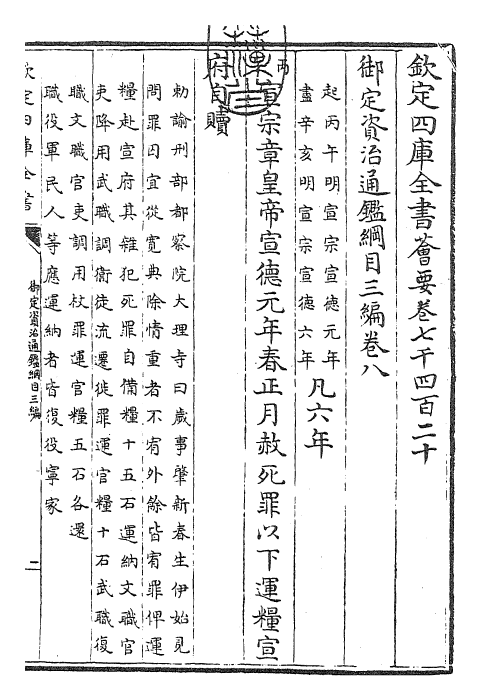 欽定四庫全書薈要卷七千四百二十
御定資治通鑑綱目三編卷八
起丙午明宣宗宣徳元年
盡辛亥明宣宗宣徳六年
凡六年
丙午
宣宗章皇帝宣德元年春正月赦死罪以下運糧宣
府自贖
勅諭刑部都察院大理寺曰歲事肇新春生伊始見
問罪囚宜從寛典除情重者不宥外餘皆宥罪俾運
糧赴宣府其雜犯死罪自備糧十五石運納文職官
吏降用武職調衛徒流遷徙罪運官糧十石武職復
職文職官吏調用杖罪運官糧五石各還
職役軍民人等應運納者皆復役寧家
欽定四庫全書
御定資治通鑑綱目三編
二